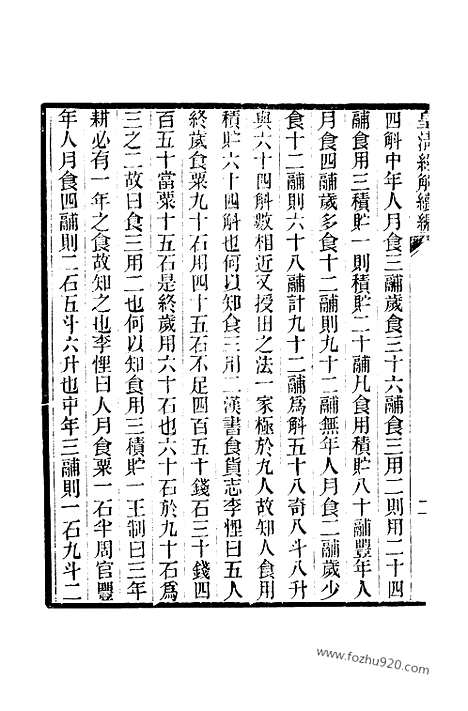 皇淸經解續編
四斛中年人月食三鬴歲食三十六鬴食三用二則用二十四
鬴食用三積貯一則積貯二十鬴凡食用積貯八十鬴豐年人
月食四鬴歲多食十二鬴則九十二鬴無年人月食二鬴歲少
食十二鬴則六十八鬴計九十二鬴爲斛五十八奇八斗八升
與六十四斛數相近又授田之法一家極於九人故知人食用
積貯六十四斛也何以知食三用二漢書食貨志李悝曰五人
終歲食粟九十石用四十五石不足四百五十錢石三十錢四
百五十當粟十五石是終歲用六十石也六十石於九十石爲
三之二故曰食三用二也何以知食用三積貯一王制曰三年
耕必有一年之食故知之也李悝曰人月食粟一石半周官豐
年人月食四鬴則二石五斗六升也中年三鬴則一石九斗二
www.fozhu920.com